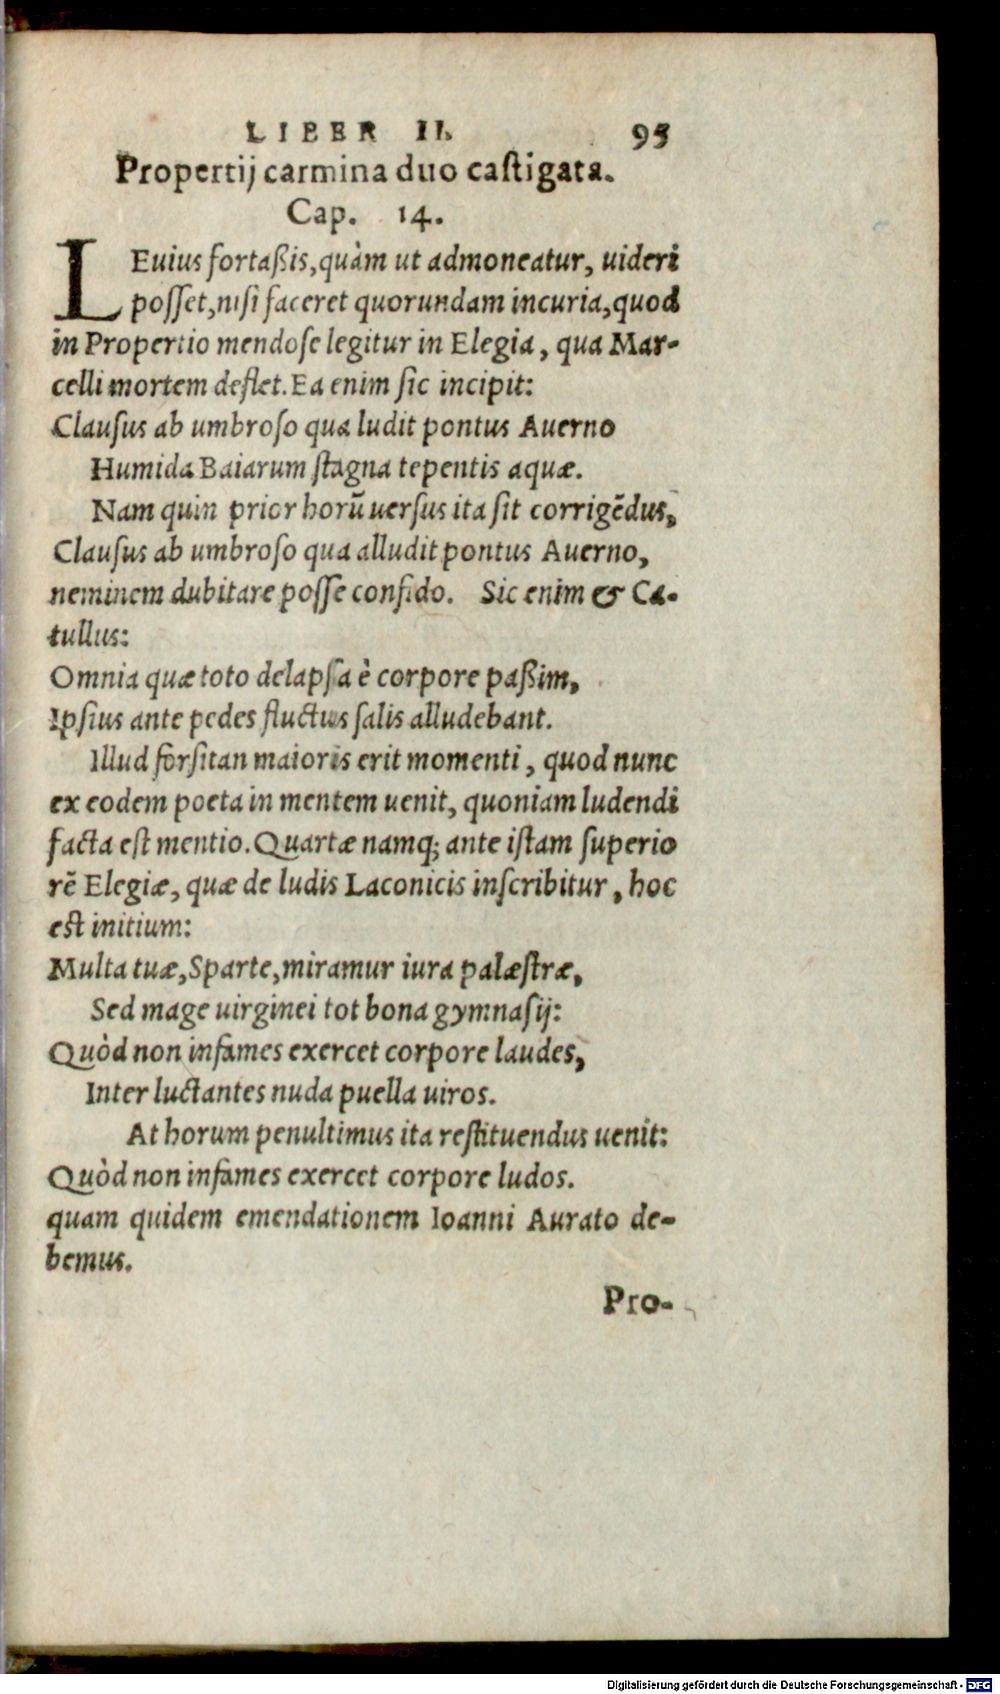 LIBER II. 95
Propertij carmina duo castigata.
Cap. 14.
LEuius fortaßis, quàm ut admoneatur, uideri
posset, nisi faceret quorundam incuria, quod
in Propertio mendose legitur in Elegia, qua Mar-
celli mortem deflet. Ea enim sic incipit:
Clausus ab umbroso qua ludit pontus Auerno
Humida Baiarum stagna tepentis aquæ.
Nam quin prior horū uersus ita sit corrigēdus,
Clausus ab umbroso qua alludit pontus Auerno,
neminem dubitare posse confido. Sic enim & Ca-
tullus:
Omnia quæ toto delapsa è corpore paßim,
Ipsius ante pedes fluctus salis alludebant.
Illud forsitan maioris erit momenti, quod nunc
ex eodem poeta in mentem uenit, quoniam ludendi
facta est mentio. Quartæ namq; ante istam superio
rē Elegiæ, quæ de ludis Laconicis inscribitur, hoc
est initium:
Multa tuæ, Sparte, miramur iura palæstræ,
Sed mage uirginei tot bona gymnasij:
Quòd non infames exercet corpore laudes,
Inter luctantes nuda puella uiros.
At horum penultimus ita restituendus uenit:
Quòd non infames exercet corpore ludos.
quam quidem emendationem Ioanni Aurato de-
bemus.
Pro-
Digitalisierung gefördert durch die Deutsche Forschungsgemeinschaft - DFG